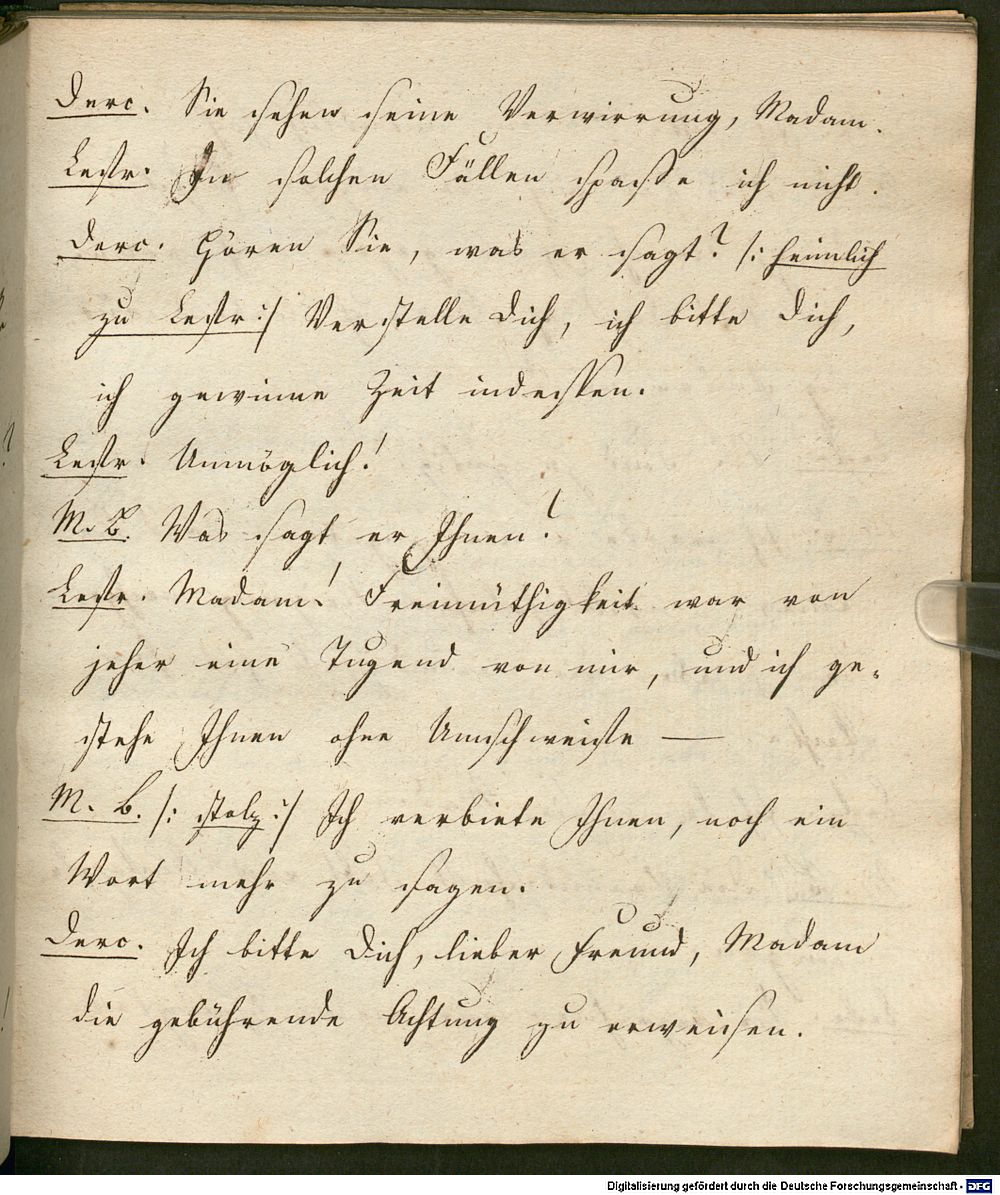 Derv. Sie sehen seine Verwirrung, Madam.
Lestr. In solchen Fällen spasse ich nicht.
Derv. Hören Sie, was er sagt? /: heimlich
zu Lestr :/ Verstelle Dich, ich bitte Dich,
ich gewinne Zeit indessen.
Lestr. Unmöglich!
M. B. Was sagt er Ihnen?
Lestr. Madam! Freimüthigkeit war von
jeher eine Tugend von mir, und ich ge-
stehe Ihnen ohne Umschweife —
M. B. /: stolz :/ Ich verbiete Ihnen, noch ein
Wort mehr zu sagen.
Derv. Ich bitte Dich, lieber Freund, Madam
die gebührende Achtung zu erweisen.
Digitalisierung gefördert durch die Deutsche Forschungsgemeinschaft - DFG